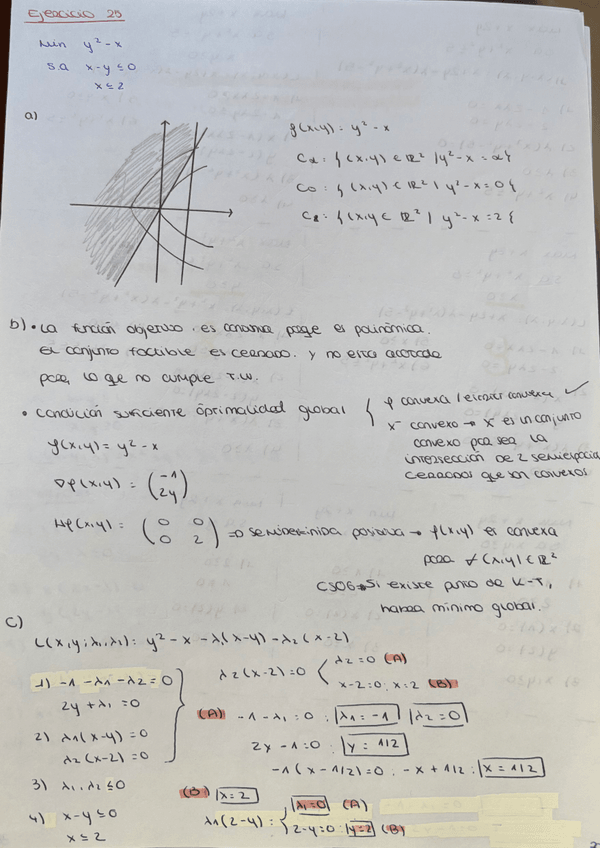 Ejercicio 25
Min y² - x
s.a x-y ≤ 0
x ≤ 2
a)
f(x,y) = y² - x
Cα = {(x,y) ∈ ℝ² / y² - x = α}
C₀ = {(x,y) ∈ ℝ² / y² - x = 0}
C₂ = {(x,y ∈ ℝ² / y² - x = 2}
b) • La función objetivo es continua porque es polinómica.
El conjunto factible es cerrado y no está acotado
por lo que no cumple T.W.
• Condición suficiente óptimalidad global { f convexa / estrict convexa ✓
X convexo → X es un conjunto
convexo por ser la
intersección de 2 semiespacios
cerrados que son convexos
f(x,y) = y² - x
∇f(x,y) = (-1 2y)
Hf(x,y) = (0 0
0 2) ⇒ semidefinida positiva → f(x,y) es convexa
para ∀ (x,y) ∈ ℝ²
CSOG ⇒ Si existe punto de K-T,
habrá mínimo global.
c)
L(x,y;λ₁,λ₂) = y² - x - λ₁(x-y) - λ₂(x-2)
1) -1 - λ1 - λ2 = 0
2y + λ₁ = 0
2) λ1(x-y) = 0
λ2(x-2) = 0
3) λ1, λ2 ≤ 0
4) x-y ≤ 0
x ≤ 2
λ2(x-2) = 0 { λ2 = 0 (A)
x-2=0; x=2 (B)
(A) -1 - λ1 = 0 ; λ1 = -1 λ2 = 0
2y - 1 = 0 ; y = 1/2
-1(x - 1/2) = 0 ; -x + 1/2 ; x = 1/2
(B) x = 2
λ1(2-y) = { λ1 = 0 (A)
2-y=0; y=2 (B)